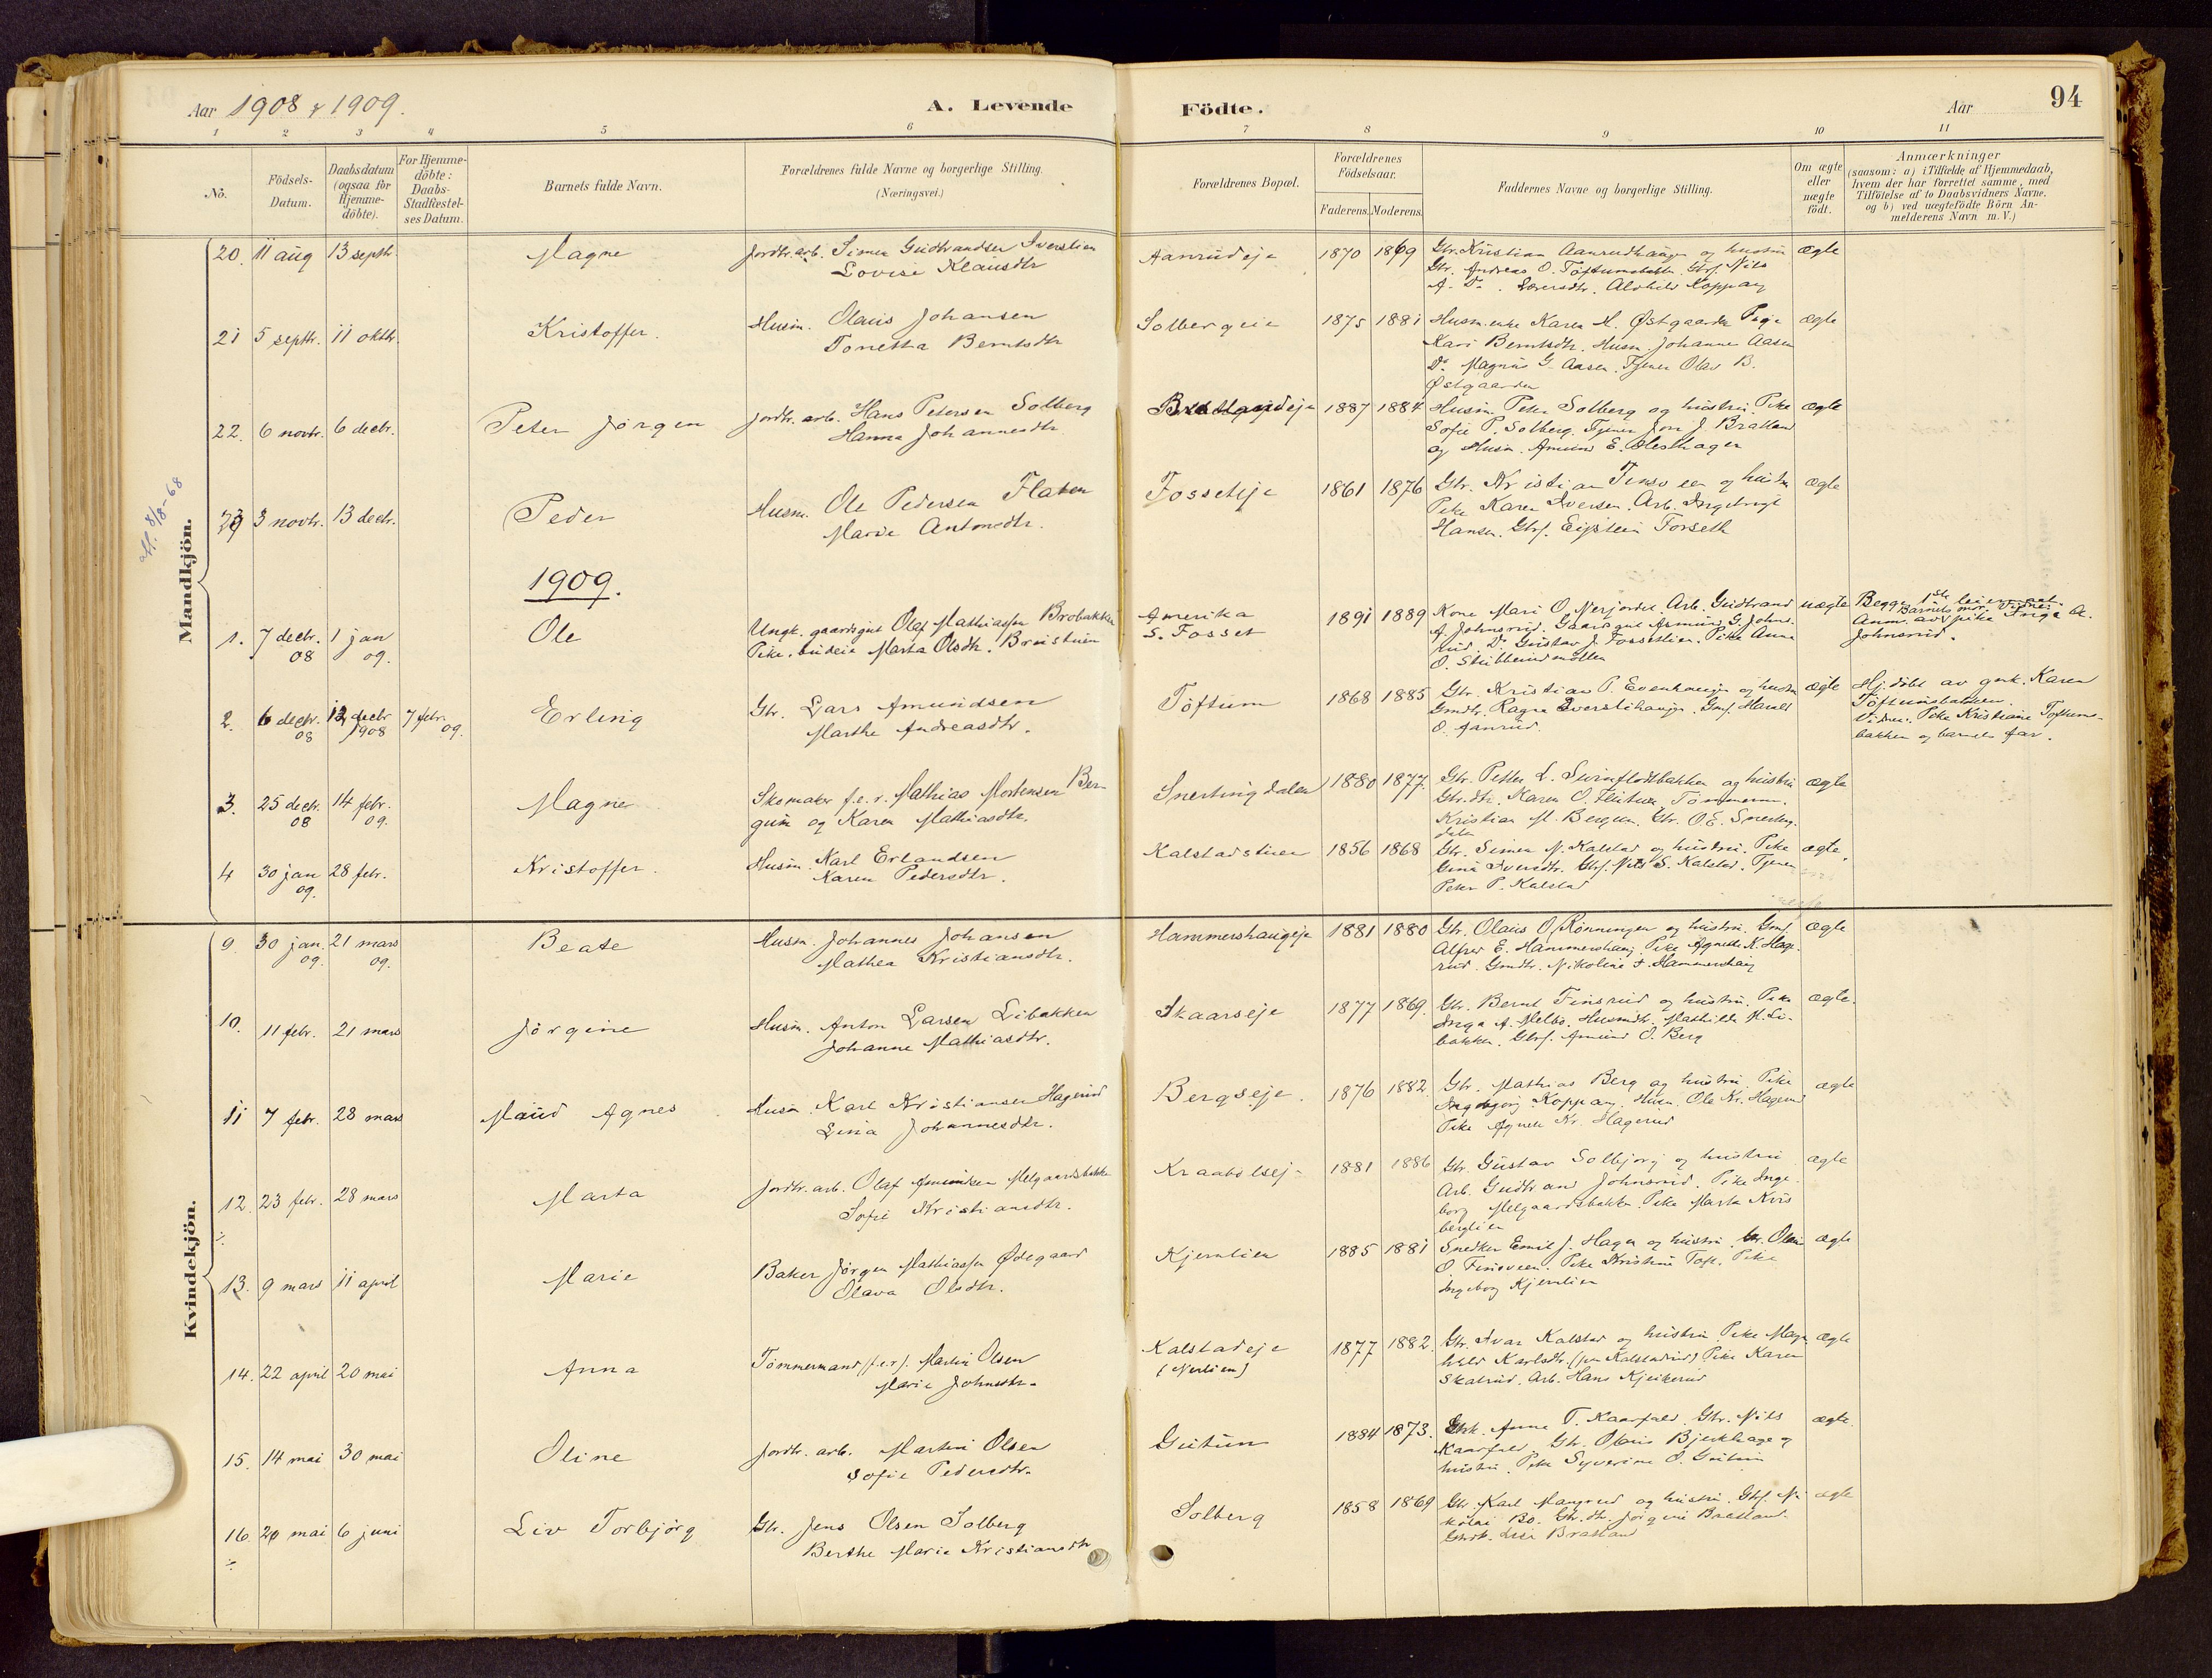 Aar 1908 & 1909.
A. Levende
Födte.
Aar
94
1 2 3 4 5 6 7 8 9 10 11
No.
Födsels-
Datum.
Daabsdatum
(ogsaa for
Hjemme-
döbte).
For Hjemme-
döbte:
Daabs-
Stadfæstel-
ses Datum.
Barnets fulde Navn.
Forældrenes fulde Navne og borgerlige Stilling.
(Næringsvei.)
Forældrenes Bopæl.
Forældrenes
Födselsaar.
Faderens. Moderens.
Faddernes Navne og borgerlige Stilling.
Om ægte
eller
uægte
födt.
Anmærkninger
(saasom: a) i Tilfælde af Hjemmedaab,
hvem der har forrettet samme, med
Tilföielse af to Daabsvidners Navne.
og b) ved uægtefödte Börn An-
melderens Navn m. V.)
Mandkjön.
20. 11 aug 13 septbr. Magne Jordbr. arb. Simen Gudbrandsen Iverslien
Lovise Klausdtr
Aanrudeje 1870 1869 Gbr. Kristian Aanrudhaugen og hustru ægte
Gbr. Andreas O. Töftumsbakken. Gbrs. Nils
Alvhild Koppang
21 5 septbr. 11 oktbr. Kristoffer. Husm. Olaus Johansen
Tonetta Berntsdtr
Solbergeie 1875 1881 Husm.enke Karen M. Østgaarden Pige ægte
Kari Berntsdtr. Husm. Johannes Aasen
Do Magnus G. Aasen. Tjener Olav B.
Østgaarden
22. 6 novbr. 6 decbr. Peter Jørgen Jordbr. arb. Hans Petersen Solberg
Hanna Johannesdtr
Bratlandeje 1887 1884 Husm. Peter Solberg og hustru. Pike ægte
Sofie P. Solberg. Tjener Jon J. Bratland
og Husm. Amund E. Hesthagen
23 3 novbr. 13 decbr. Peder Husm. Ole Pedersen Flaten
Marie Antonsdtr.
Fosseteje 1861 1876 Gbr. Kristian Finsveen og hustru ægte
Pike Karen Iversen. Arb. Ingebrigt
Hansen. Gbrs. Eistein Forseth
1909.
1. 7 decbr. 08 1 jan 09. Ole Ungk. gaardsgut Olaf Mathiassen Brobakken
Pike, budeie Marta Olsdtr. Breistuen
Amerika
S. Fosset
1891 1889 Kone Mari O. Nerjordet. Arb. Gudbrand uægte
A. Johnsrud. Gaardsgut Asmund G. Johns-
rud. Do Gustav J. Fossetlien. Pike Anna
O. Stubberudmollen
Begges 1ste leiermaal.
Anm. av barnets mor. Vidne: pike Inga A.
Johnsrud.
2. 6 decbr. 08 12 decbr 1908 7 febr. 09. Erling Gbr. Lars Amundsen
Marthe Andreasdtr.
Töftum 1868 1885 Gbr. Kristian P. Evenhaugen og hustru ægte
Gmdtr. Ragna Iverslihaugen. Gms. Harald
O. Aanrud.
Hj.döbt av gmk. Karen
Töftumsbakken.
Vidner: Pike Kristiane Töftums-
bakken og barnets far.
3. 25 decbr. 08 14 febr. 09. Magne Skomaker f.e.r. Mathias Mortensen Ber-
gum og Karen Mathiasdtr.
Snertingdalen 1880 1877. Gbr. Petter L. Svinflodtbakken og hustru ægte
Gbr.dtr. Karen O. Flutuen, Tömmerm.
Kristian M. Bergum. Gbr. O.E. Snerting-
dalen
4 30 jan 09. 28 febr. Kristoffer. Husm. Karl Erlandsen
Karen Pedersdtr.
Kalstadstuen 1856 1868 Gbr. Simen N. Kalstad og hustru. Pike ægte.
Gina Iversdtr. Gbrs. Nils S. Kalstad. Tjener
Peter P. Kalstad
Kvindekjön.
9. 30 jan. 09. 21 mars 09. Beate Husm. Johannes Johansen
Mathea Kristiansdtr.
Hammershaugeje 1881 1880 Gbr. Olaus O. Rönningen og hustru. Gms. ægte
Alfred E. Hammershaug. Pike Agnethe K. Hage-
rud. Gmdtr. Nikoline J. Hammershaug
10. 11 febr. 21 mars Jørgine Husm. Anton Larsen Libakken
Johanne Mathiasdtr.
Skaarseje 1877 1869. Gbr. Bernt Finsrud og hustru. Pike ægte.
Inga A. Melbö. Husmdtr. Mathilde M. Li-
bakken. Gbrs. Amund O. Berg
11 7 febr. 28 mars Maud Agnes Husm. Karl Kristiansen Hagerud
Lina Johannesdtr.
Bergseje. 1876 1882 Gbr. Mathias Berg og hustru. Pike ægte
Ingeborg Koppang. Husm. Ole Kr. Hagerud
Pike Agnethe Kr. Hagerud
12. 23 febr. 28 mars Marta Jordbr. arb. Olaf Amundsen Melgaardsbakken
Sofie Kristiansdtr.
Kraabölseje 1881 1886 Gbr. Gustav Solbjorg og hustru ægte
Arb. Gudbrand Johnsrud. Pike Inge-
borg Melgaardsbakken. Pike Marta Kris
berglien
13. 9 mars 11 april Marie Baker Jörgen Mathiassen Ødegaard
Olava Olsdtr.
Kjernlien 1885 1881 Snedker Emil J. Hagen og hustru. Gbr. Olaus ægte
O. Finsveen. Pike Kristine Toft. Pike
Ingeborg Kjernlien
14. 22 april 20 mai Anna Tömmermand (f.e.r). Martin Olsen
Marie Johnsdtr.
Kalstadeje
(Nerlien)
1877 1882. Gbr. Ivar Kalstad og hustru. Pike Magn- ægte
hild Karlsdtr. (fra Kalstadrud) Pike Karen
Skalrud. Arb. Hans Kjeikerud
15. 14 mai 30 mai Oline Jordbr. arb. Martin Olsen
Sofie Pedersdtr.
Gutum 1884 1873. Gbrk. Anne T. Kaarfald. Gbr. Nils ægte.
Kaarfald. Gbr. Olaus Bjerkhage og
hustru. Pike Syverine O. Gutum
16. 20 mai 6 juni Liv Torbjörg Gbr. Jens Olsen Solberg
Berthe Marie Kristiansdtr
Solberg 1858 1869 Gbr. Karl Maugrud og hustru. Gbrs. Ni- ægte
kolai Bö. Gbr.dtr. Jörgine Bratland.
Gbrdtr. Lise Bratland